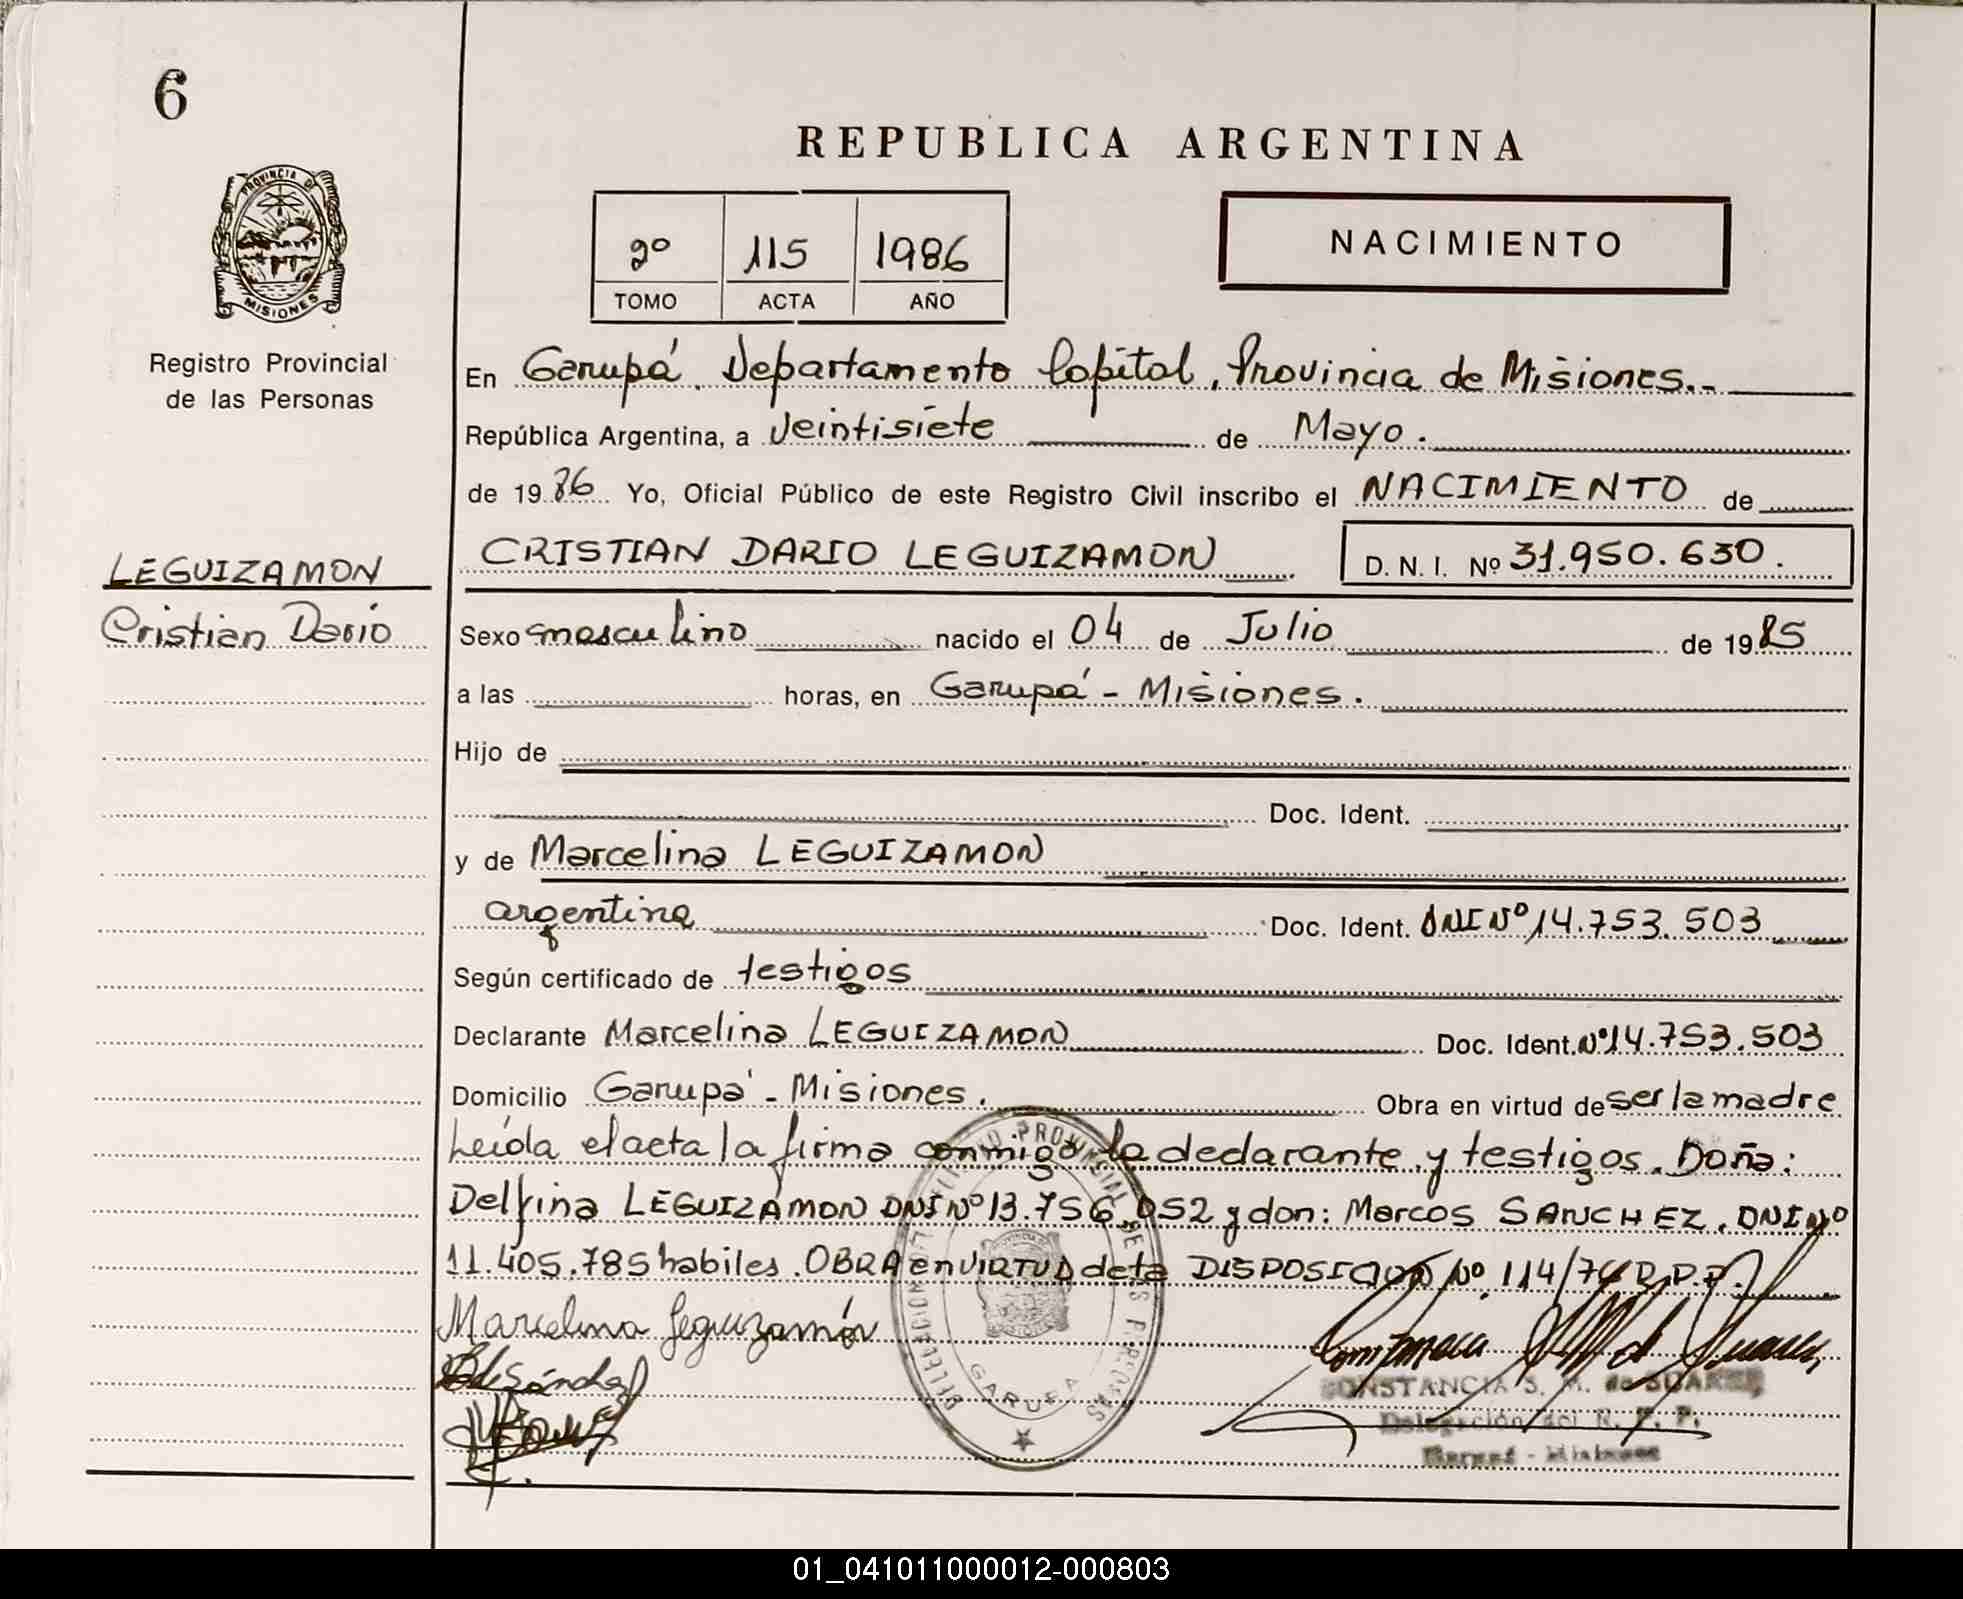 6
REPUBLICA ARGENTINA
PROVINCIA DE
MISIONES
2º 115 1986
TOMO ACTA AÑO
NACIMIENTO
Registro Provincial
de las Personas
En Garupá. Departamento Capital, Provincia de Misiones.-
República Argentina, a Veintisiete de Mayo.
de 19 86 Yo, Oficial Público de este Registro Civil inscribo el NACIMIENTO de
LEGUIZAMON
Cristian Dario
CRISTIAN DARIO LEGUIZAMON D. N. I. Nº 31.950.630.
Sexo masculino nacido el 04 de Julio de 19 85
a las horas, en Garupá - Misiones.
Hijo de
Doc. Ident.
y de Marcelina LEGUIZAMON
argentina Doc. Ident. DNI Nº 14.753.503
Según certificado de testigos
Declarante Marcelina LEGUIZAMON Doc. Ident. Nº 14.753.503
Domicilio Garupá - Misiones. Obra en virtud de ser la madre
Leída el acta la firma conmigo, la declarante y testigos. Doña:
Delfina LEGUIZAMON DNI Nº 13.756.052 y don: Marcos SANCHEZ. DNI Nº
11.405.785 habiles. OBRA en VIRTUD de la DISPOSICION Nº 114/74 D.P.P.
Marcelina Leguizamón
Sánchez
GARUPA
CONSTANCIA S. M. de SUAREZ
Delegación del R. P. P.
Garupá - Misiones
01_041011000012-000803